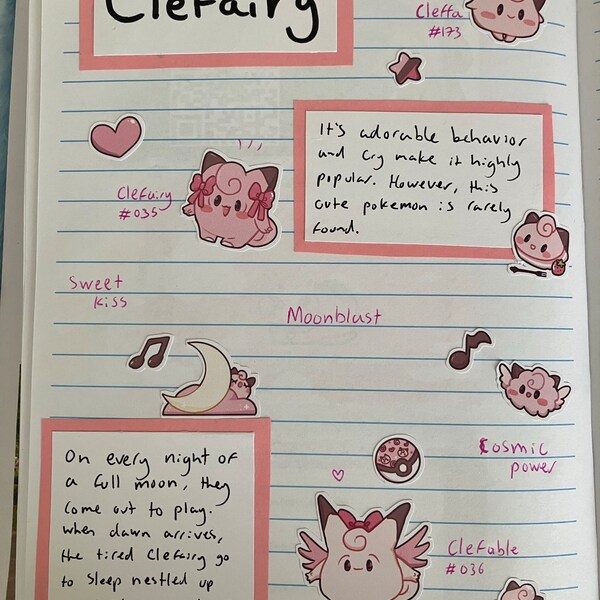 Clefairy
Cleffa
#173
It's adorable behavior
and cry make it highly
popular. However, this
cute pokemon is rarely
found.
Clefairy
#035
Sweet
kiss
Moonblast
On every night of
a full moon, they
come out to play.
when dawn arrives,
the tired Clefairy go
to sleep nestled up
Cosmic
power
Clefable
#036